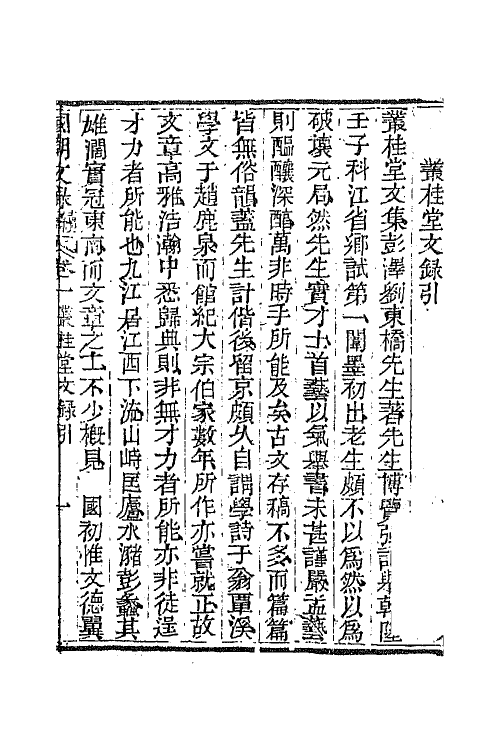 叢桂堂文錄引
叢桂堂文集彭澤劉東橋先生著先生博覽強記舉乾隆
壬子科江省鄉試第一闈墨初出老生頗不以爲然以爲
破壞元局然先生實才士首藝以氣舉書未甚謹嚴孟藝
則醞釀深醇萬非時手所能及矣古文存稿不多而篇篇
皆無俗韻蓋先生計偕後留京頗久自謂學詩于翁覃溪
學文于趙鹿泉而館紀大宗伯家數年所作亦嘗就正故
文章高雅浩瀚中悉歸典則非無才力者所能亦非徒逞
才力者所能也九江居江西下流山峙匡廬水瀦彭蠡其
雄濶實冠東南而文章之士不少槪見 國初惟文德翼
國朝文錄續編 卷一 叢桂堂文錄引 一